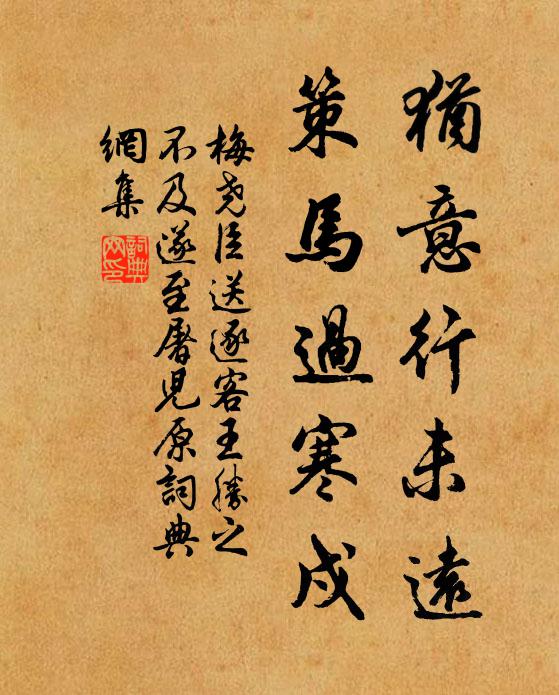 猶意行未遠
策馬過寒戍
梅堯臣送逐客王勝之
不及遂至屠兒原詞典
網集
詞典
网印